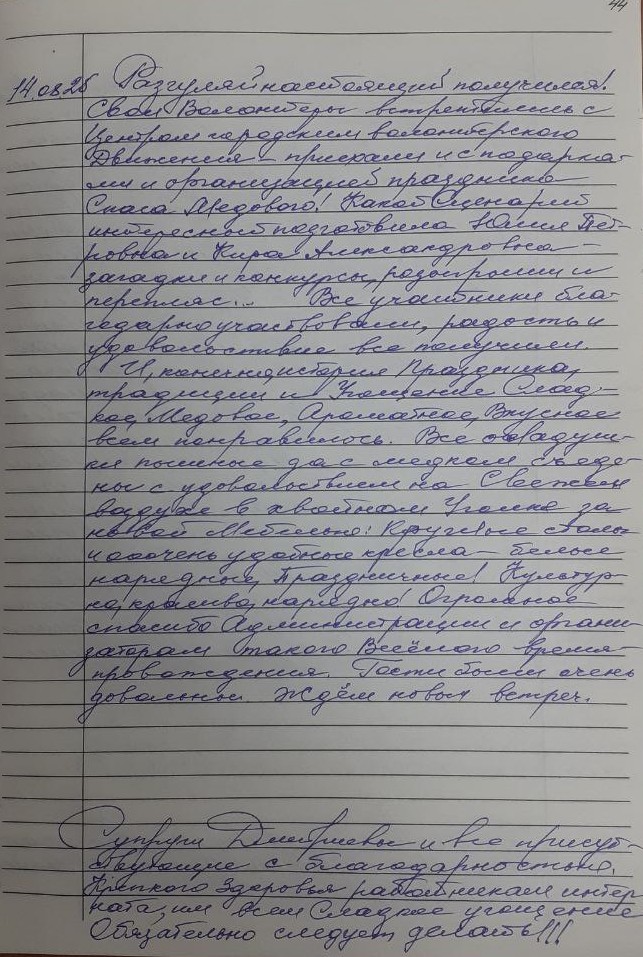 44
14.08.25 Разгуляй настоящий получился!
Свои Волонтеры встретились с
Центром городским волонтерского
Движения – приехали и с подарка-
ми и организацией праздника
Спаса Медового! Какой Сценарий
интересной подготовила Юлия Пет-
ровна и Кира Александровна –
загадки и конкурсы, розыгрыши и
перепляс... Все участники бла-
годарно участвовали, радость и
удовольствие все получили.
И, конечно, история Праздника,
традиции и Угощение Слад-
кое, Медовое, Ароматное, Вкусное
всем понравилось. Все оладуш-
ки пышные да с медком съеде-
ны с удовольствием на Свежем
воздухе в хвойном Уголке за
новой Мебелью: Круглые столы
и ооочень удобные кресла – белые
нарядные, Праздничные! Культур-
но, красиво, нарядно! Огромное
спасибо Администрации и органи-
заторам такого Весёлого время-
провождения. Гости были очень
довольны. Ждём новых встреч.
Супруги Дмитриевы и все присут-
ствующие с благодарностью.
Крепкого Здоровья работникам интер-
ната, им всем Сладкое угощение
Обязательно следует делать!!!